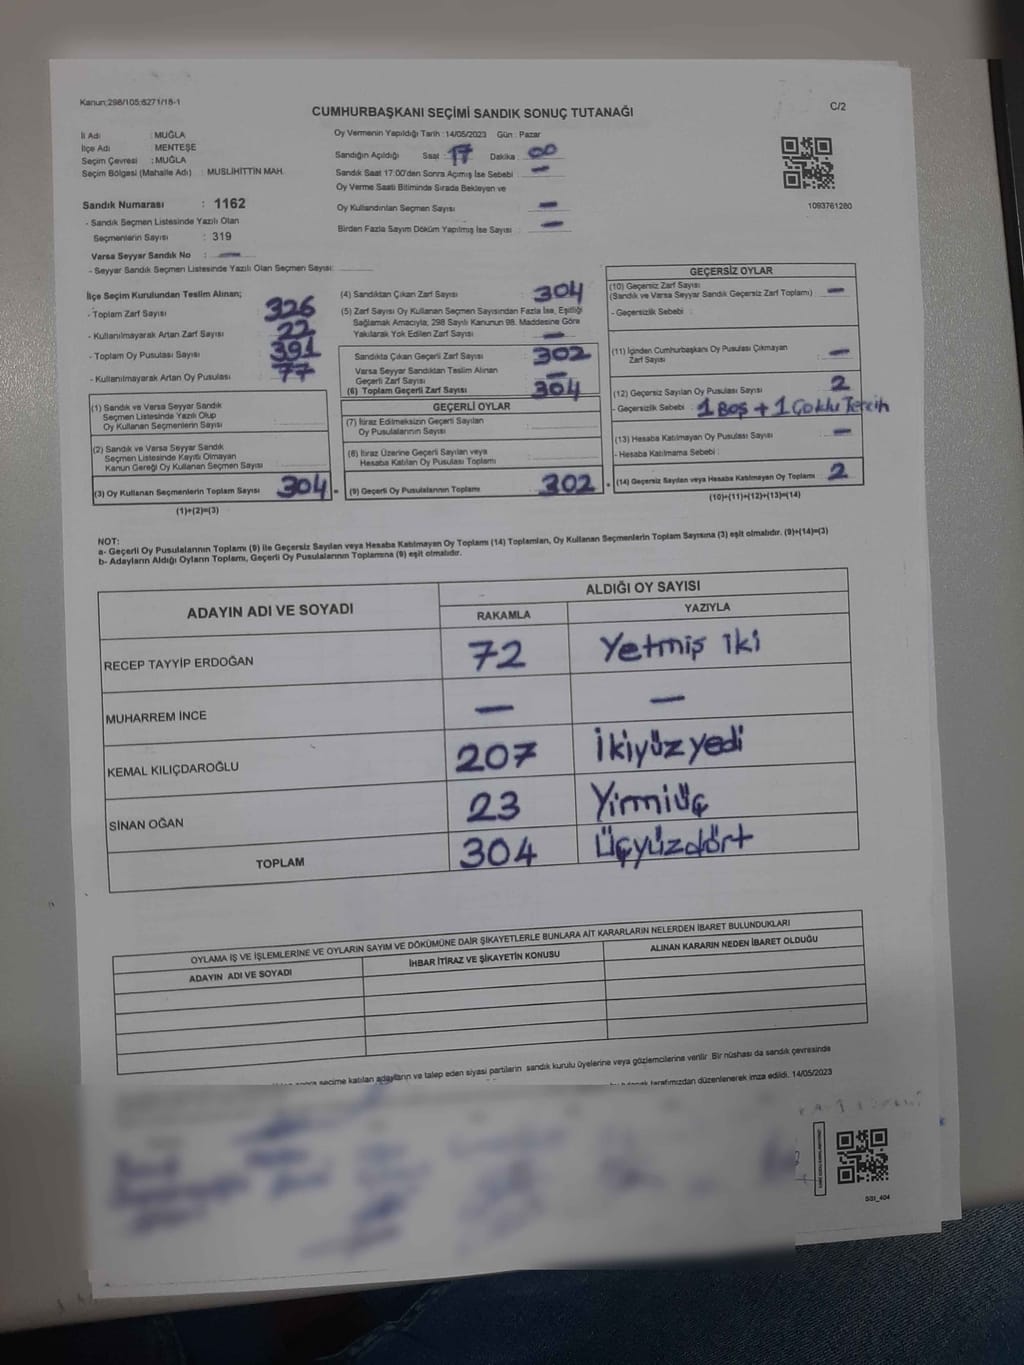 Kanun;298/105;6271/18-1
CUMHURBAŞKANI SEÇİMİ SANDIK SONUÇ TUTANAĞI
C/2
İl Adı : MUĞLA
İlçe Adı : MENTEŞE
Seçim Çevresi : MUĞLA
Seçim Bölgesi (Mahalle Adı) : MUSLİHİTTİN MAH.
Sandık Numarası : 1162
- Sandık Seçmen Listesinde Yazılı Olan
Seçmenlerin Sayısı : 319
Varsa Seyyar Sandık No : —
- Seyyar Sandık Seçmen Listesinde Yazılı Olan Seçmen Sayısı:
Oy Vermenin Yapıldığı Tarih : 14/05/2023 Gün : Pazar
Sandığın Açıldığı Saat : 17 Dakika : 00
Sandık Saat 17.00'den Sonra Açımış İse Sebebi : —
Oy Verme Saati Bitiminde Sırada Bekleyen ve
Oy Kullandırılan Seçmen Sayısı : —
Birden Fazla Sayım Döküm Yapılmış İse Sayısı : —
1093761280
İlçe Seçim Kurulundan Teslim Alınan;
- Toplam Zarf Sayısı : 326
- Kullanılmayarak Artan Zarf Sayısı : 22
- Toplam Oy Pusulası Sayısı : 391
- Kullanılmayarak Artan Oy Pusulası : 77
(1) Sandık ve Varsa Seyyar Sandık
Seçmen Listesinde Yazılı Olup
Oy Kullanan Seçmenlerin Sayısı :
(2) Sandık ve Varsa Seyyar Sandık
Seçmen Listesinde Kayıtlı Olmayan
Kanun Gereği Oy Kullanan Seçmen Sayısı :
(3) Oy Kullanan Seçmenlerin Toplam Sayısı : 304 =
(1)+(2)=(3)
(4) Sandıktan Çıkan Zarf Sayısı : 304
(5) Zarf Sayısı Oy Kullanan Seçmen Sayısından Fazla İse, Eşitliği
Sağlamak Amacıyla; 298 Sayılı Kanunun 98. Maddesine Göre
Yakılarak Yok Edilen Zarf Sayısı : —
Sandıkta Çıkan Geçerli Zarf Sayısı : 302
Varsa Seyyar Sandıktan Teslim Alınan
Geçerli Zarf Sayısı : —
(6) Toplam Geçerli Zarf Sayısı : 304
GEÇERLİ OYLAR
(7) İtiraz Edilmeksizin Geçerli Sayılan
Oy Pusulalarının Sayısı :
(8) İtiraz Üzerine Geçerli Sayılan veya
Hesaba Katılan Oy Pusulası Toplamı :
(9) Geçerli Oy Pusulalarının Toplamı : 302 +
GEÇERSİZ OYLAR
(10) Geçersiz Zarf Sayısı
(Sandık ve Varsa Seyyar Sandık Geçersiz Zarf Toplamı) : —
- Geçersizlik Sebebi :
(11) İçinden Cumhurbaşkanı Oy Pusulası Çıkmayan
Zarf Sayısı : —
(12) Geçersiz Sayılan Oy Pusulası Sayısı : 2
- Geçersizlik Sebebi : 1 Boş + 1 Çoklu Tercih
(13) Hesaba Katılmayan Oy Pusulası Sayısı : —
- Hesaba Katılmama Sebebi :
(14) Geçersiz Sayılan veya Hesaba Katılmayan Oy Toplamı : 2
(10)+(11)+(12)+(13)=(14)
NOT:
a- Geçerli Oy Pusulalarının Toplamı (9) ile Geçersiz Sayılan veya Hesaba Katılmayan Oy Toplamı (14) Toplamları, Oy Kullanan Seçmenlerin Toplam Sayısına (3) eşit olmalıdır. (9)+(14)=(3)
b- Adayların Aldığı Oyların Toplamı, Geçerli Oy Pusulalarının Toplamına (9) eşit olmalıdır.
ADAYIN ADI VE SOYADI ALDIĞI OY SAYISI
RAKAMLA YAZIYLA
RECEP TAYYİP ERDOĞAN 72 Yetmiş iki
MUHARREM İNCE — —
KEMAL KILIÇDAROĞLU 207 İkiyüz yedi
SİNAN OĞAN 23 Yirmiüç
TOPLAM 304 Üçyüzdört
OYLAMA İŞ VE İŞLEMLERİNE VE OYLARIN SAYIM VE DÖKÜMÜNE DAİR ŞİKAYETLERLE BUNLARA AİT KARARLARIN NELERDEN İBARET BULUNDUKLARI
ADAYIN ADI VE SOYADI İHBAR İTİRAZ VE ŞİKAYETİN KONUSU ALINAN KARARIN NEDEN İBARET OLDUĞU
seçime katılan adayların ve talep eden siyasi partilerin sandık kurulu üyelerine veya gözlemcilerine verilir. Bir nüshası da sandık çevresinde
tarafımızdan düzenlenerek imza edildi. 14/05/2023
SSI_404